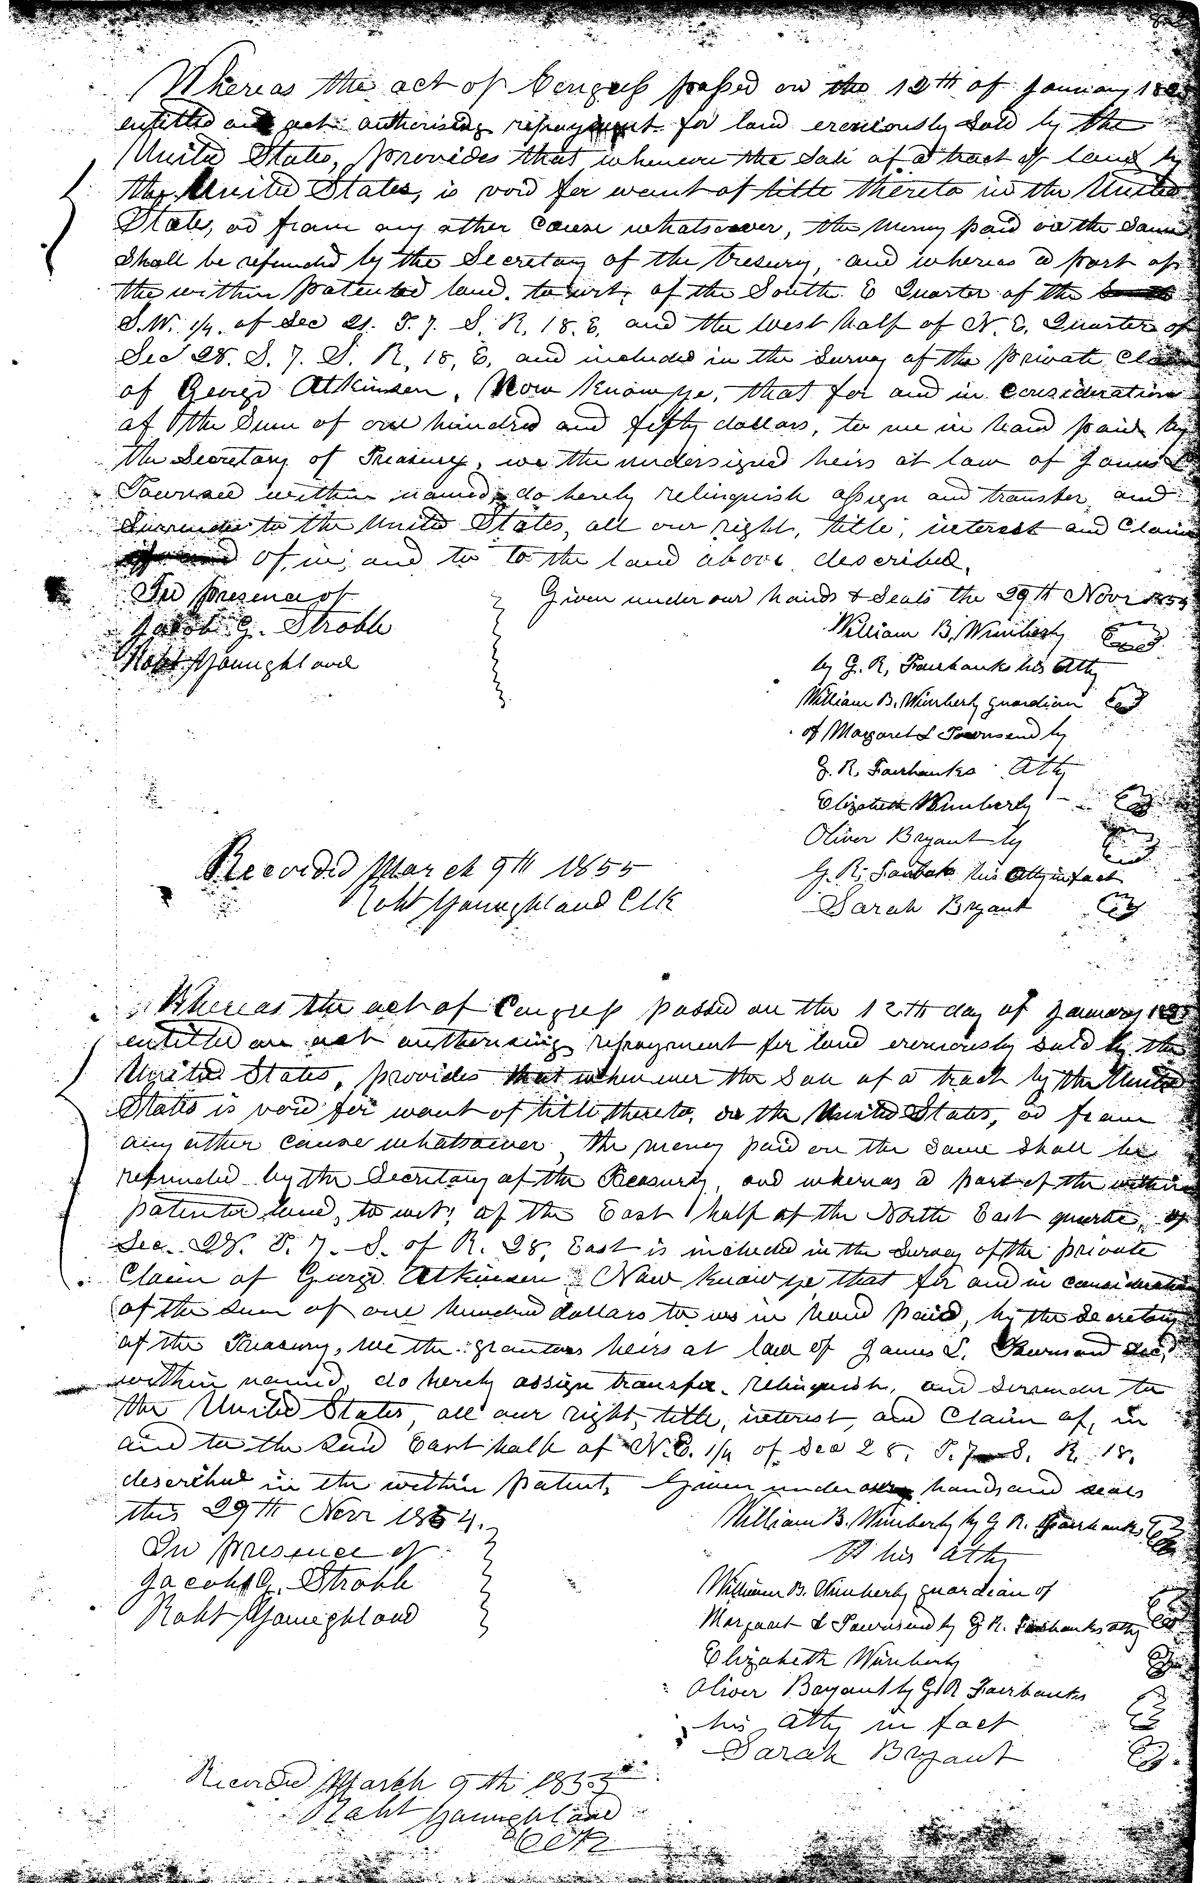 Whereas the act of Congress passed on the 12th of January 182
entitled an act authorising repayment for land ereniously sold by the
United States, provides that whenever the Sale of a tract of land by
the United States, is void for want of title thereto in the United
States, or from any other cause whatsoever, the money paid on the same
Shall be refunded by the Secretary of the tresury, and whereas a part of
the within patented land. to wit, of the South E Quarter of the
S.W. 1/4. of Sec 21. T. 7. S. R, 18. E, and the West half of N. E, Quarter of
Sec 28. S. 7. S. R, 18, E, and included in the Survey of the private Claim
of George Atkinson, Now know ye, that for and in consideration
of the Sum of one hundred and fifty dollars, to me in hand paid by
the Secretary of Treasury, we the undersigned heirs at law of James L
Townsed within named, do hereby relinquish assign and transfer and
Surrender to the United States, all our right, title, interest and Claim
of, in, and to to the land above described.
In presence of
Given under our hands & Seals the 29th Novr 1854
Jacob G. Strobh
William B. Wimberly
Robt Youughland
by G. R, Fairbanks his Atty
William B. Wimberly guardian
of Margaret L Townsend by
G. R. Fairbanks Atty
Elizabeth Wimberly
Oliver Bryant by
Recorded March 9th 1855
G. R. Fairbak his Atty in fact
Robt Youughland Clk
Sarah Bryant
Whereas the act of Congress passed on the 12th day of January 182
entitled an act authorising repayment for land ereniously sold by the
United States, provides that whenever the Sale of a track by the United
States is void for want of title thereto, in the United States, or from
any other cause whatsoever, the money paid on the same shall be
refunded by the Secretary of the Treasury, and whereas a part of the within
patented land, to wit; of the East half of the North East quarter, of
Sec. 28. T. 7. S. of R. 28, East is included in the Survey of the private
Claim of George Atkinson Now know ye that for and in consideration
of the sum of one hundred dollars to us in hand paid, by the Secretary
of the Treasury, we the grantors heirs at law of James L. Townsend Decd
within named, do hereby assign transfer relinquish, and Surrender to
the United States, all our right, title, interest, and Claim of, in
and to the said East half of N.E. 1/4 of Sec 28, T. 7 S. R. 18.
described in the within patent, Given under our hands and seals
this 29th Novr 1854.
William B. Wimberly by G R. Fairbanks
In presence of
his Atty
Jacob G. Strobh
William B. Wimberly guardian of
Robt Youughland
Margaret L Townsend by G R. Fairbanks atty
Elizabeth Wimberly
Oliver Bryant by G R Fairbanks
his Atty in fact
Sarah Bryant
Recorded March 9th 1855
Robt Youughland
Clk